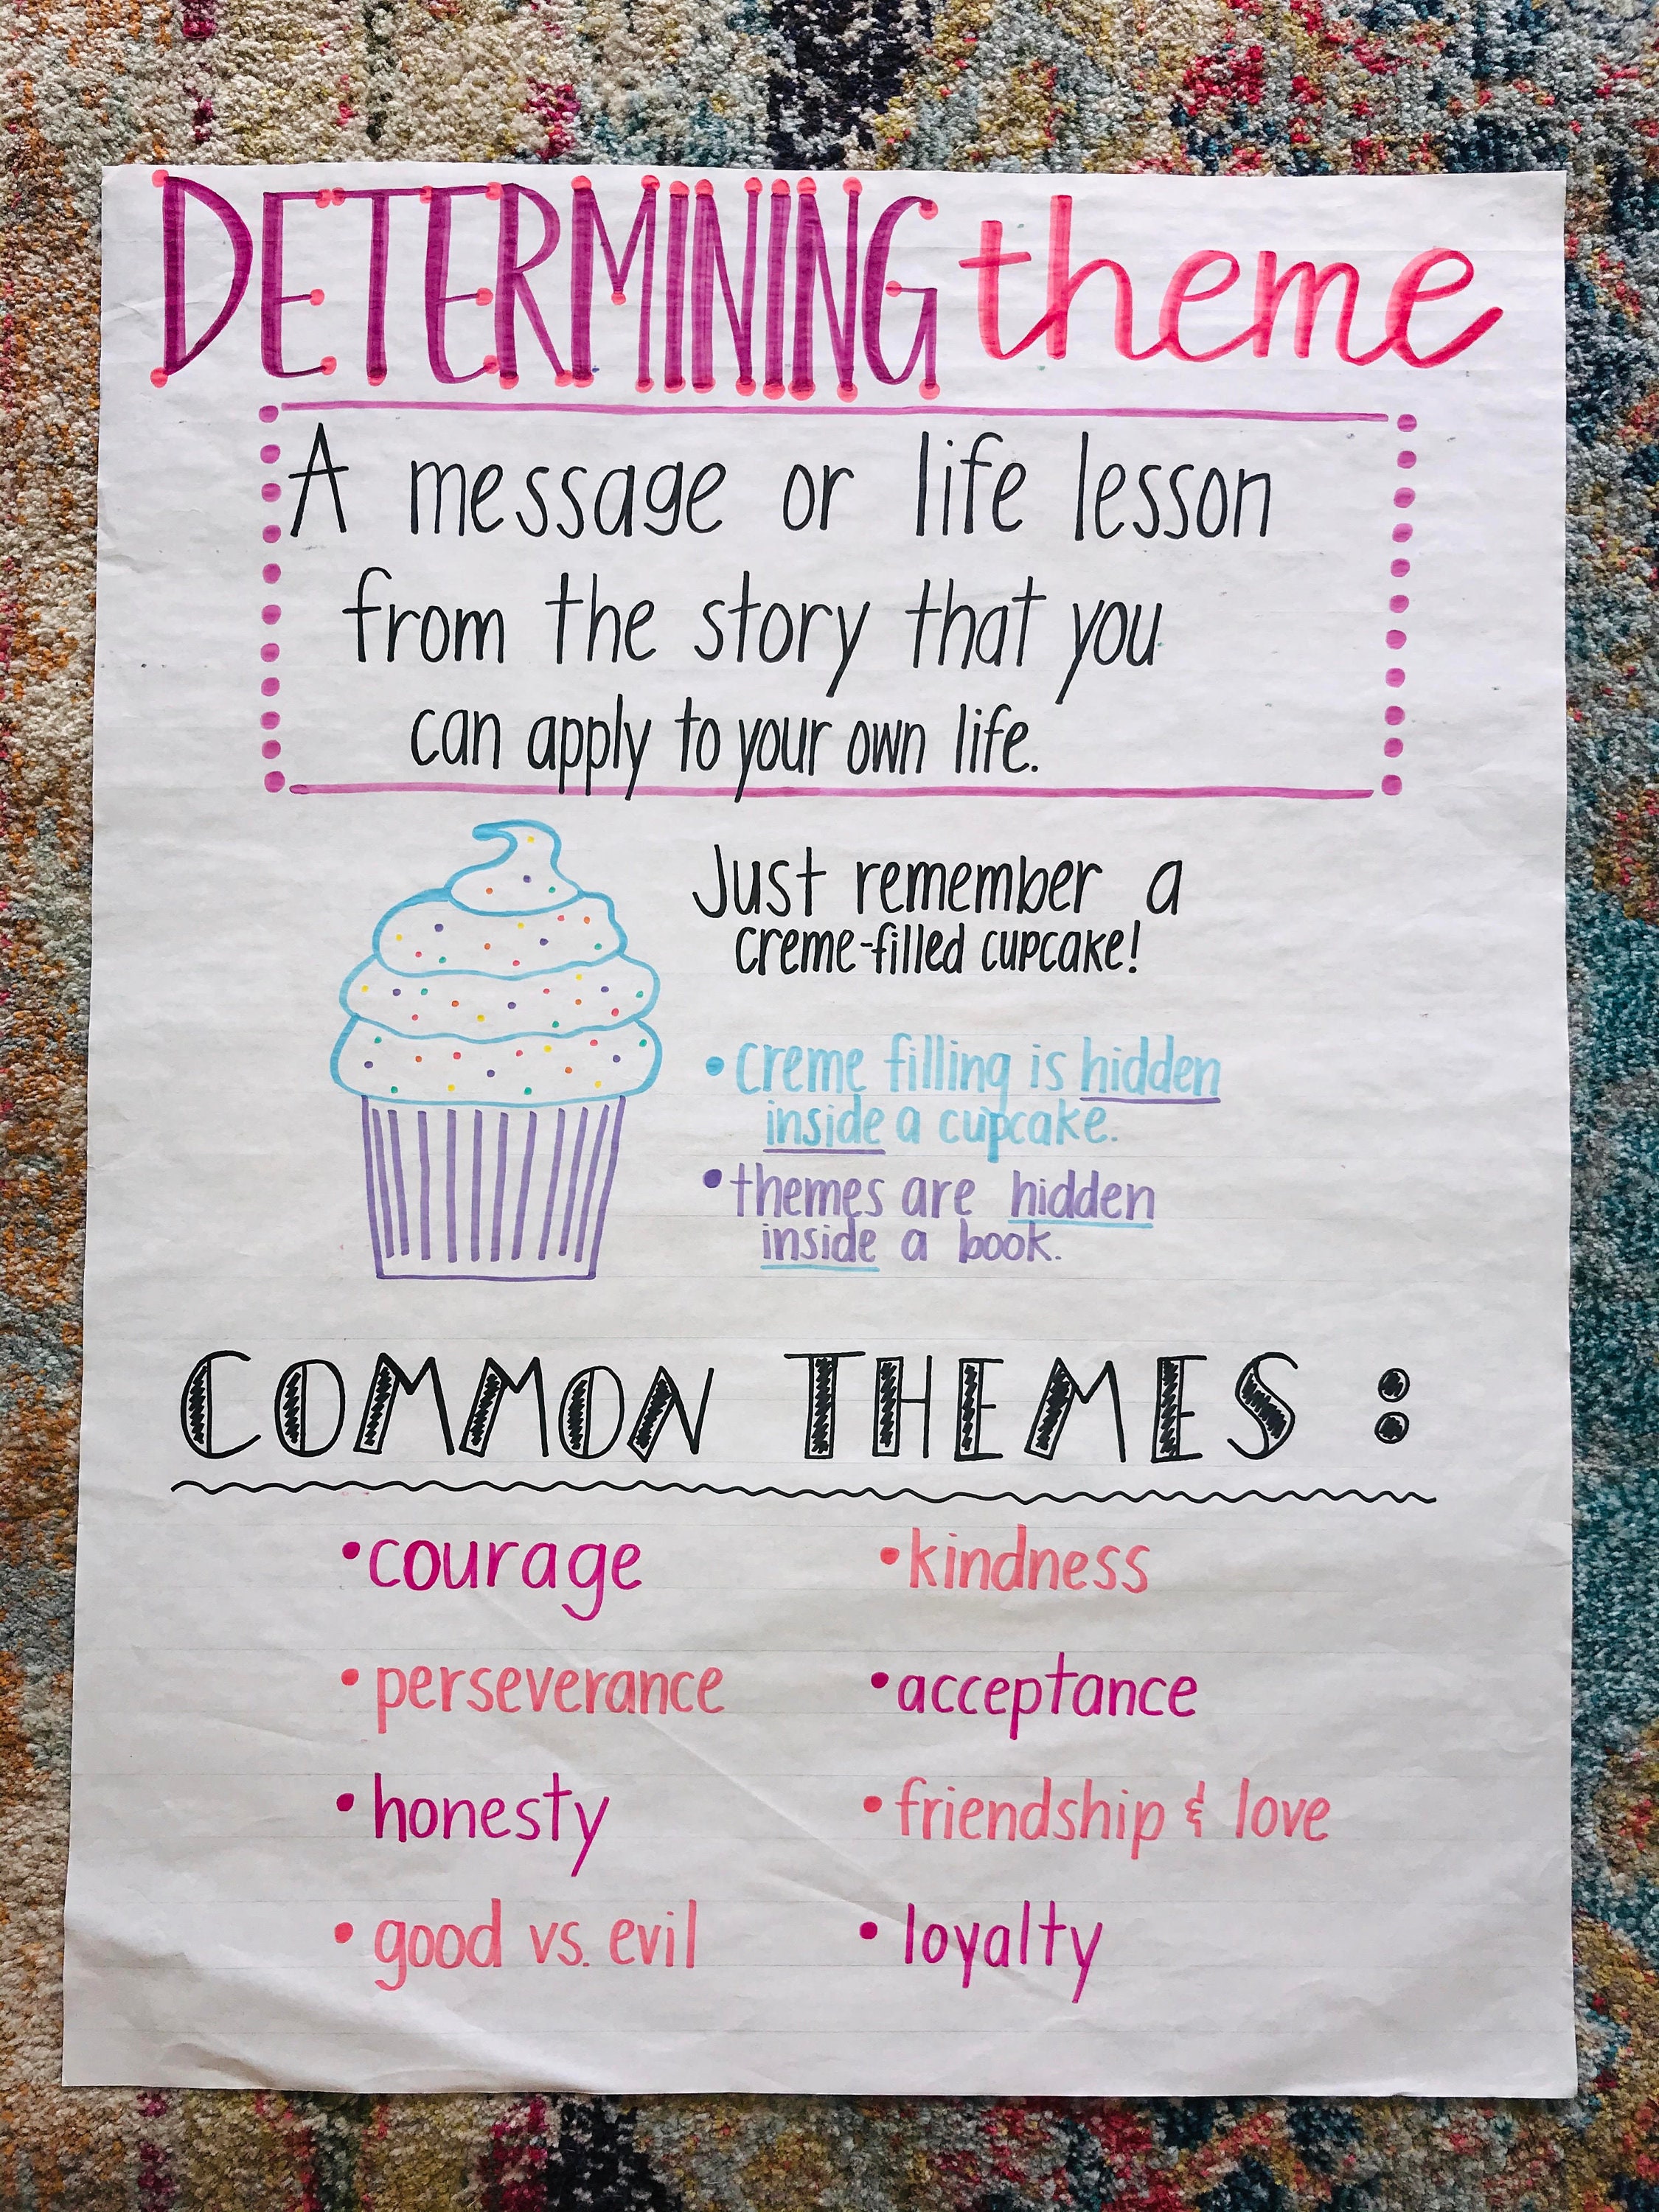 DETERMINING theme
A message or life lesson
from the story that you
can apply to your own life.
Just remember a
creme-filled cupcake!
• creme filling is hidden
inside a cupcake.
• themes are hidden
inside a book.
COMMON THEMES:
• courage
• kindness
• perseverance
• acceptance
• honesty
• friendship & love
• good vs. evil
• loyalty